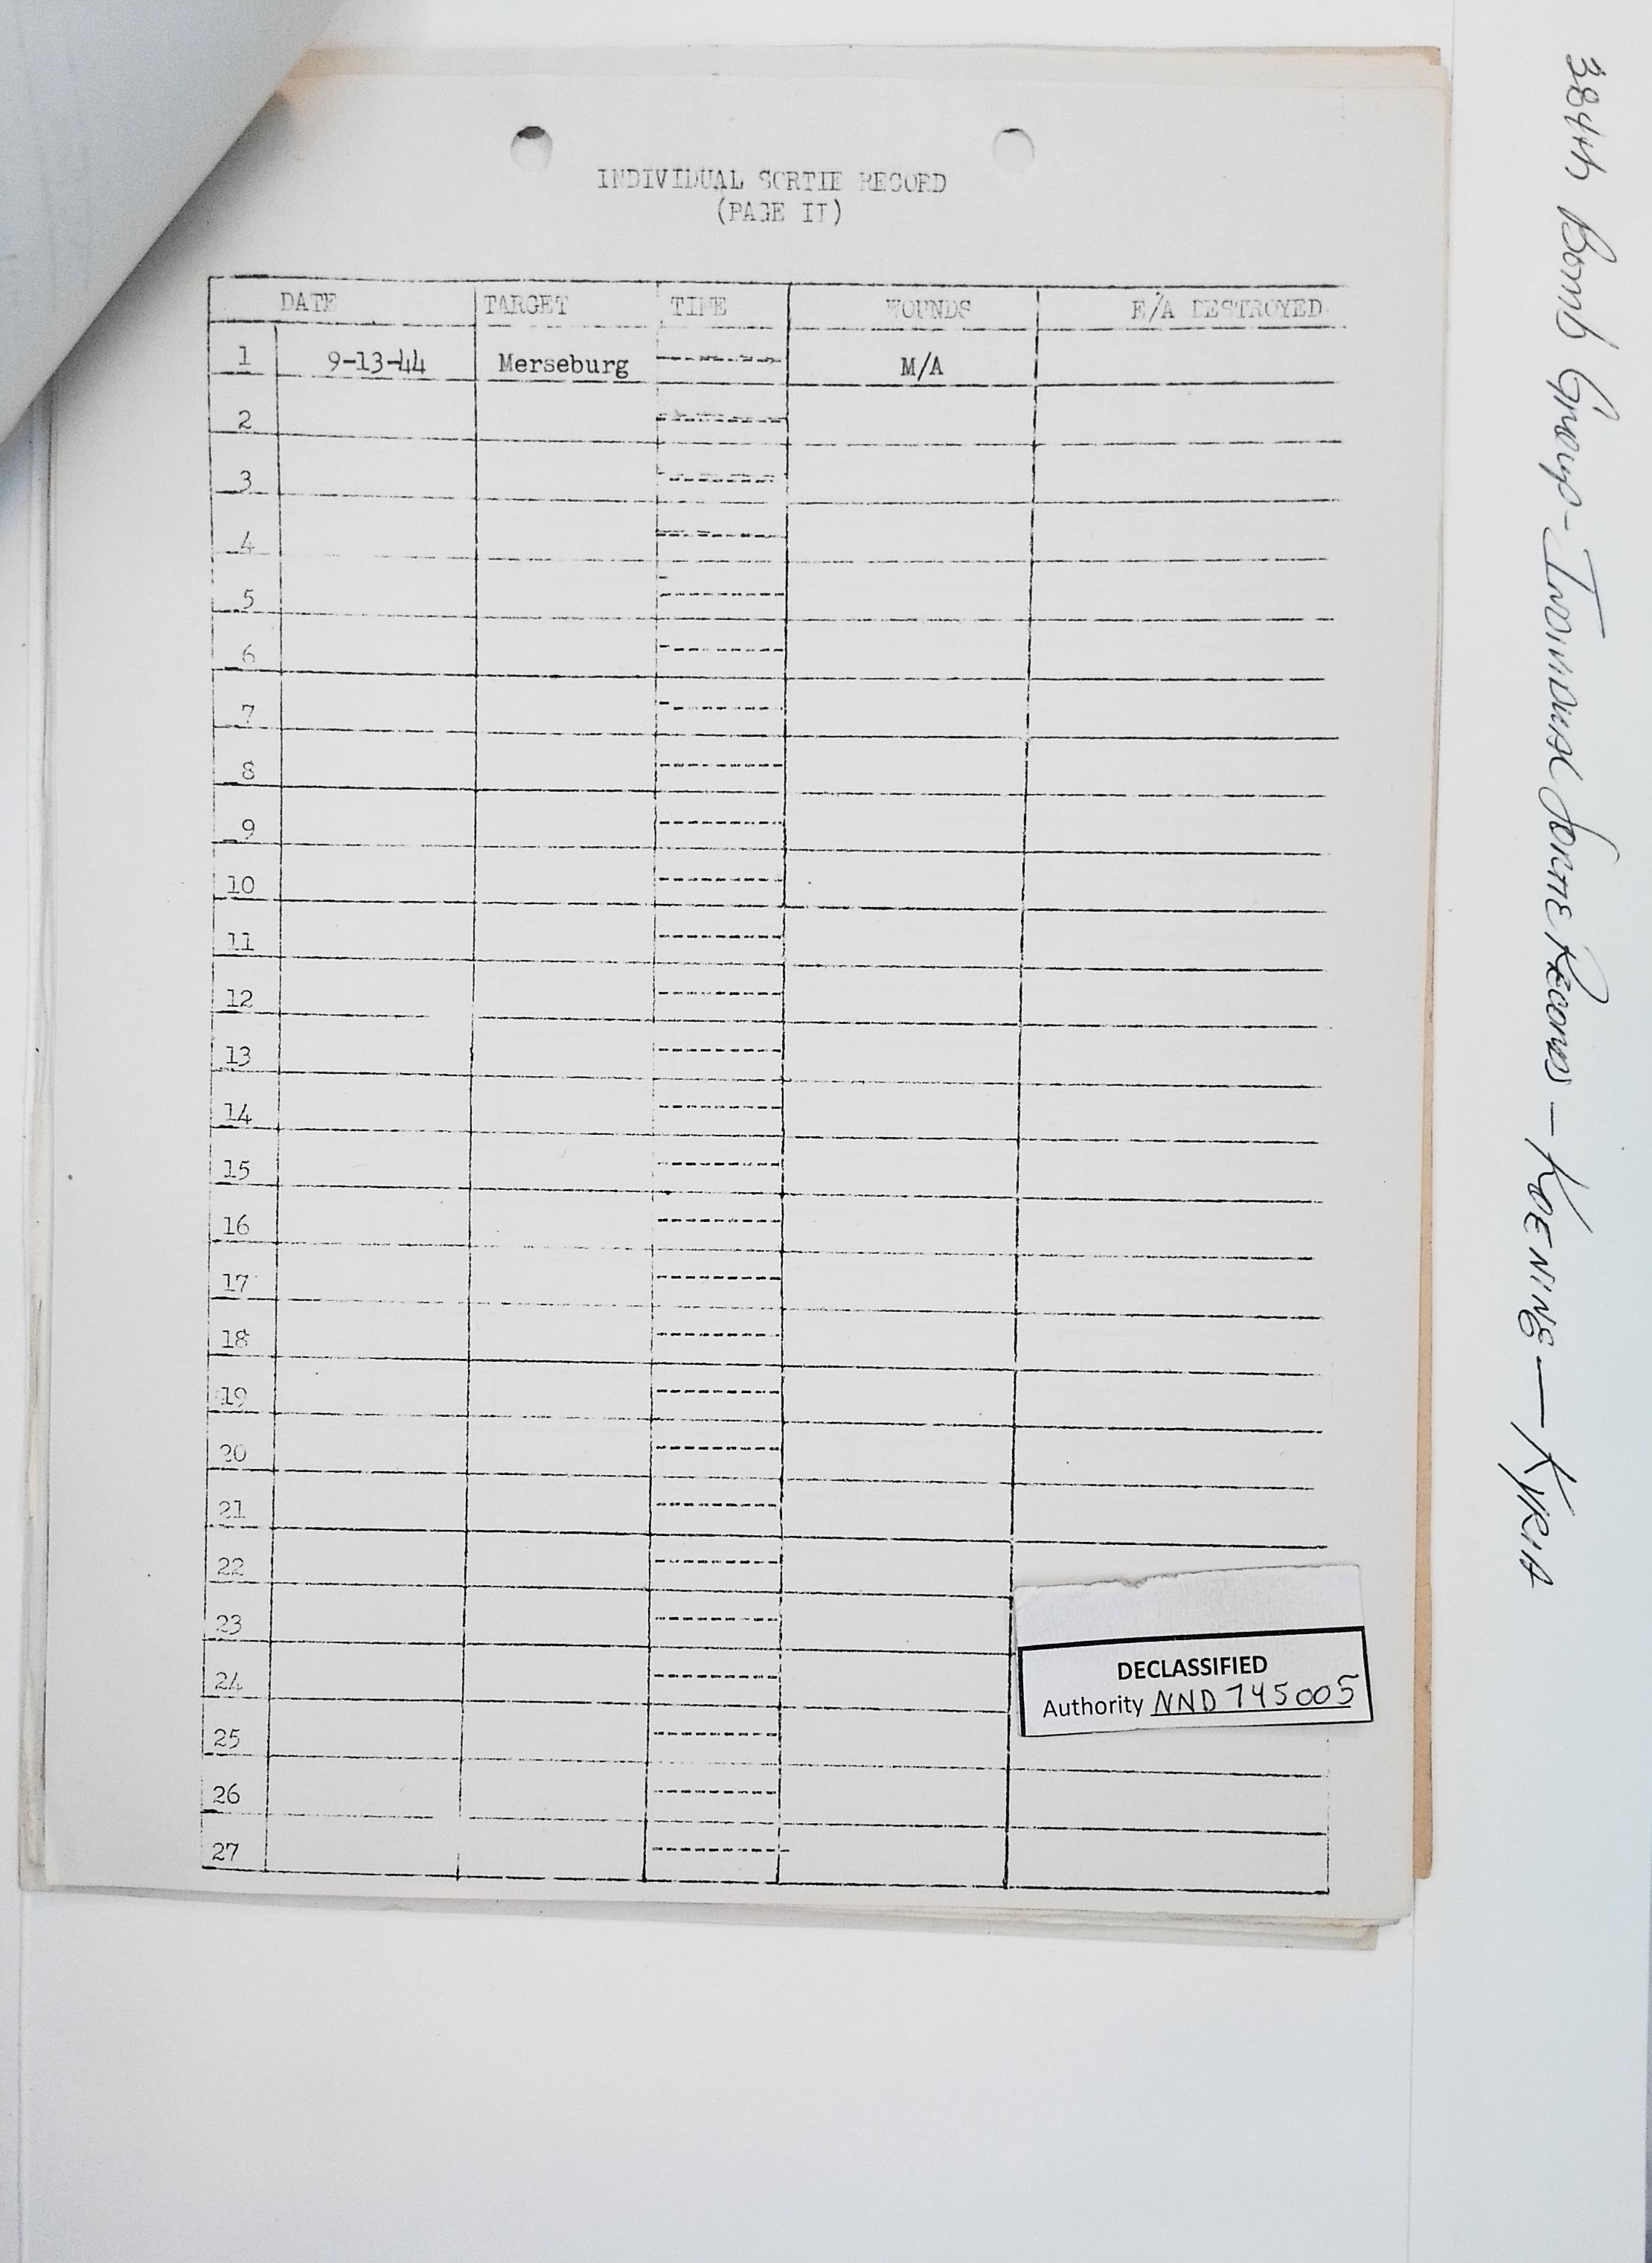 INDIVIDUAL SORTIE RECORD
(PAGE II)
DATE TARGET TIME WOUNDS E/A DESTROYED
1 9-13-44 Merseburg M/A
2
3
4
5
6
7
8
9
10
11
12
13
14
15
16
17
18
19
20
21
22
23
24
25
26
27
DECLASSIFIED
Authority NND 745005
384th Bomb Group - Individual Sortie Records - KOENING - KYRIA